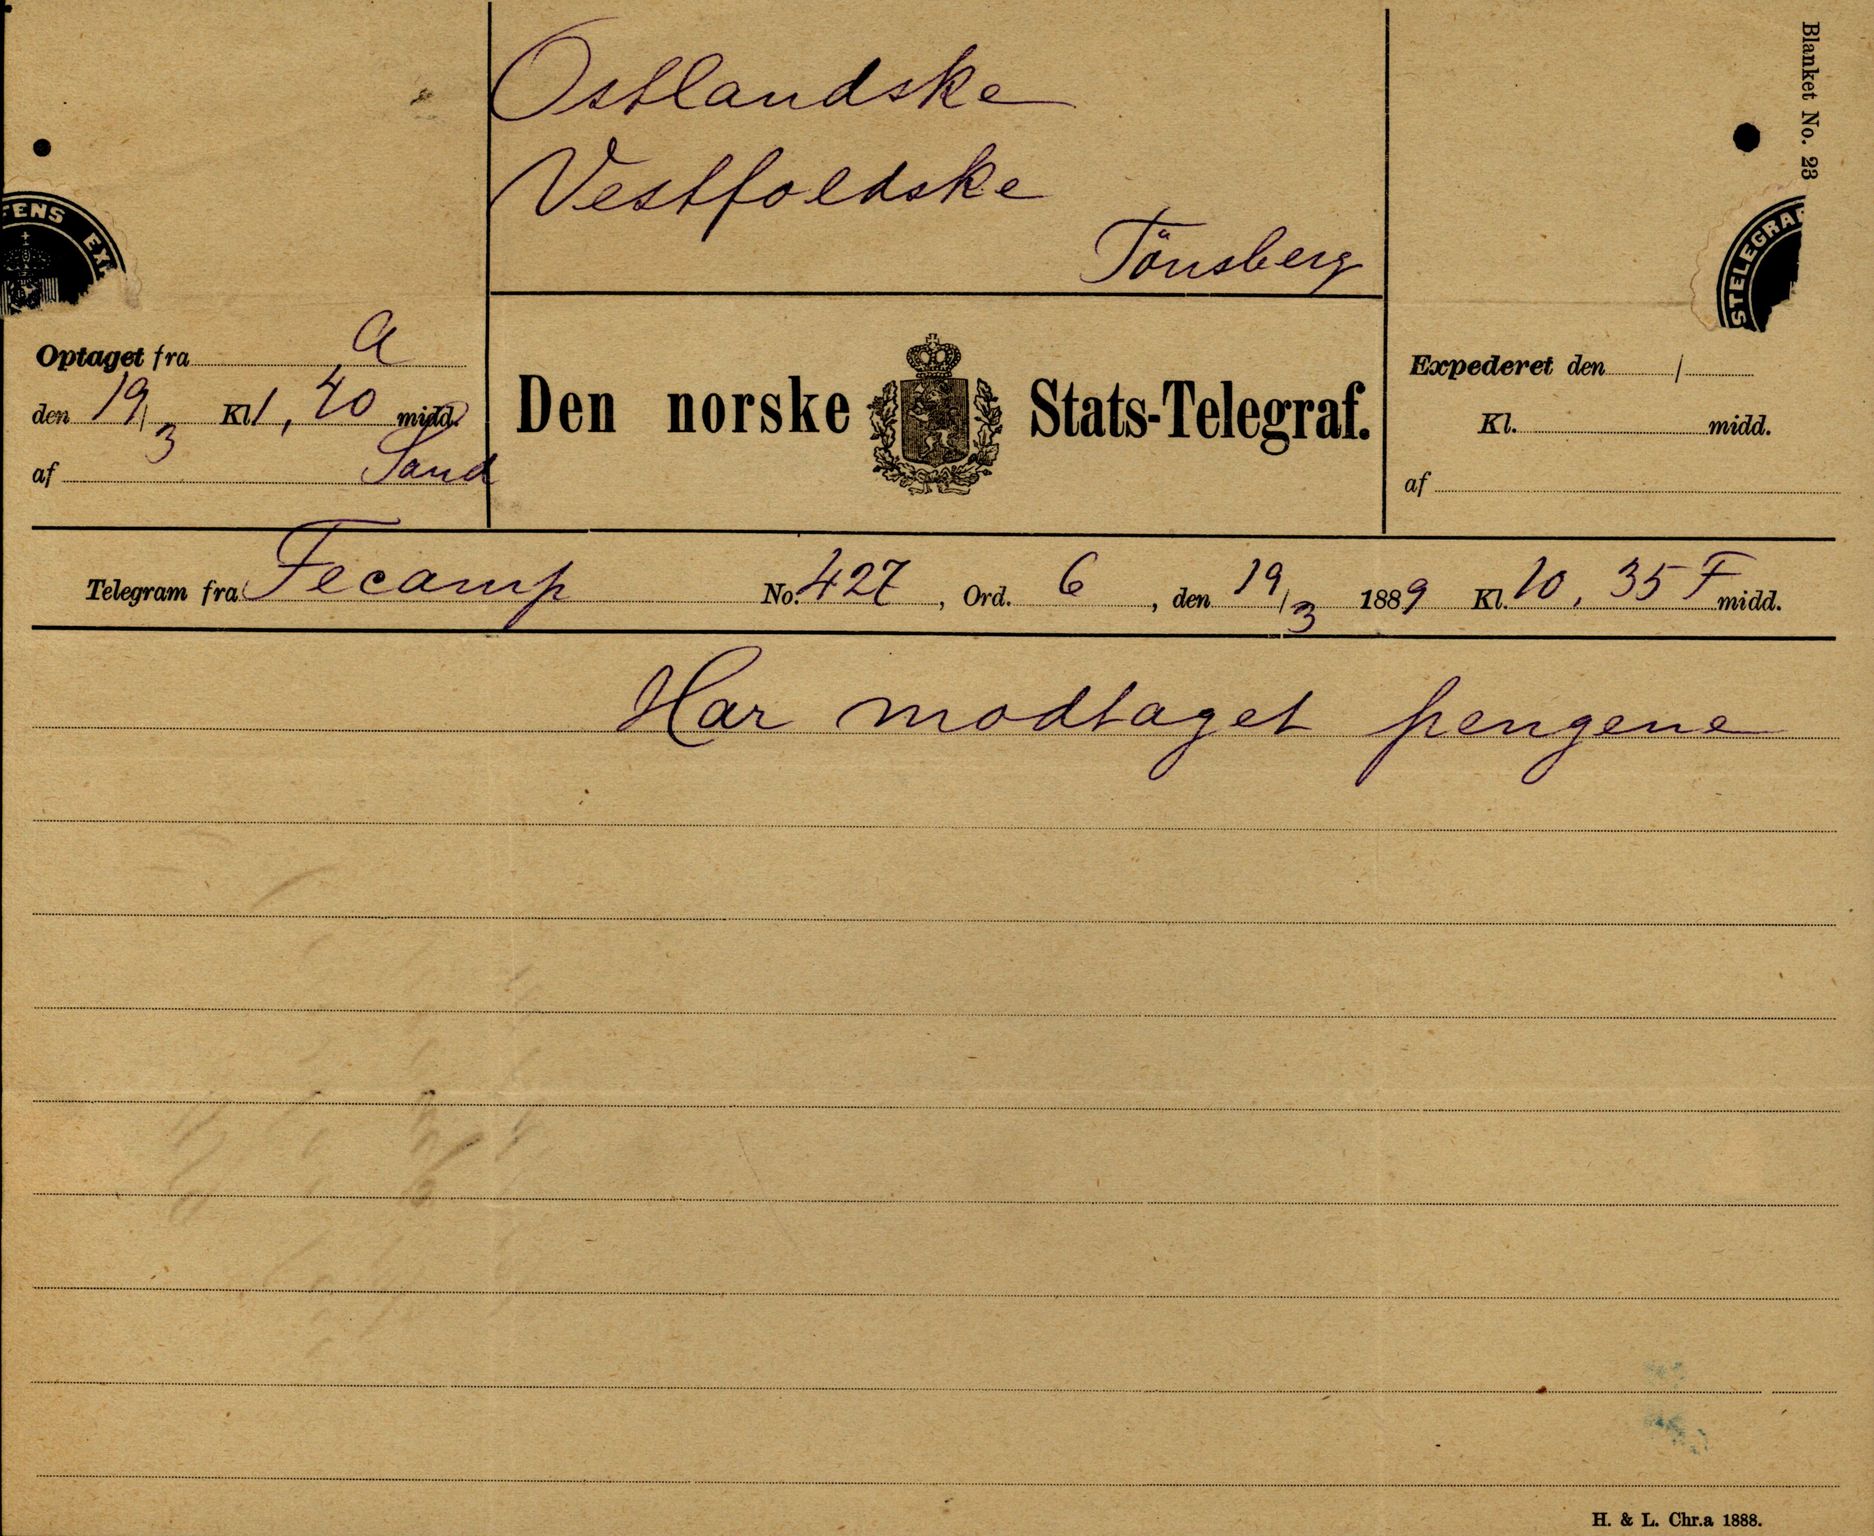 Blanket No. 23
Ostlandske
Vestfoldske
Tönsberg
FENS EX.
STELEGRA
Optaget fra a
den 19/3 Kl. 1,40 midd.
af Sand
Den norske Stats-Telegraf.
Expederet den /
Kl. midd.
af
Telegram fra Fecamp No. 427, Ord. 6, den 19/3 1889 Kl. 10,35 F midd.
Har modtaget pengene
H. & L. Chr.a 1888.